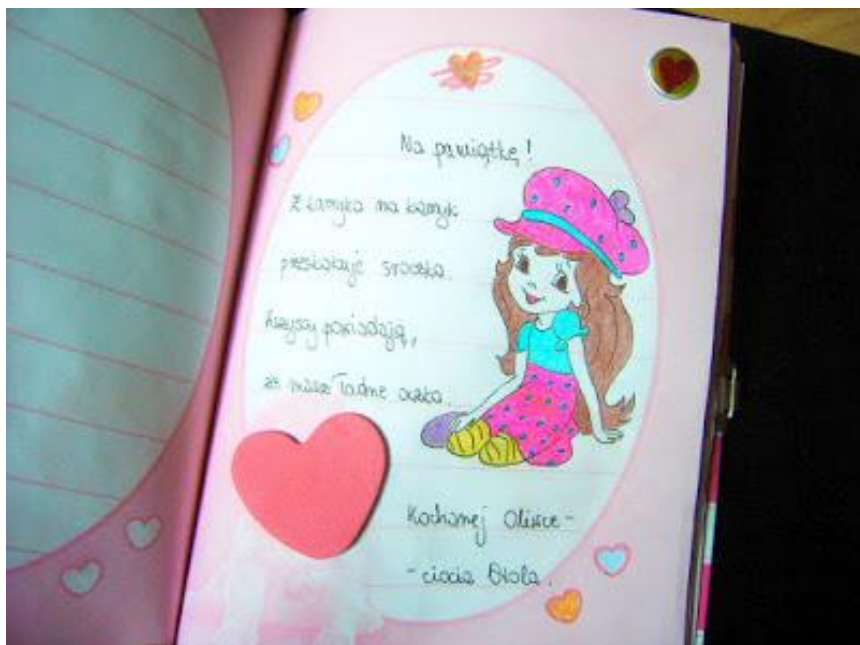 Na pamiątkę!
Z kamyka na kamyk
przeskakuje sroczka.
Wszyscy powiadają,
że masz ładne oczka.
Kochanej Oliwce -
- ciocia